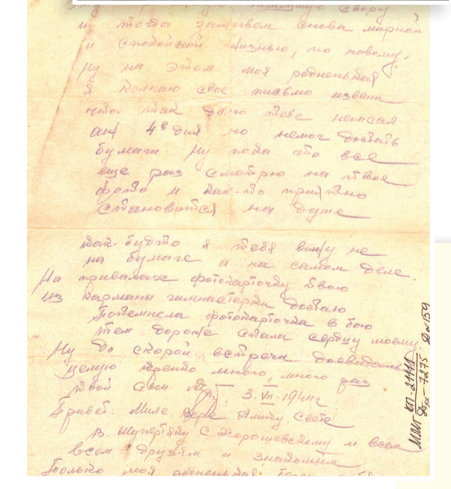 и тогда заживем снова мирной
и спокойной жизнью, по новому.
Ну на этом моя родненькая
я кончаю свое письмо извени
что так долго тебе неписал
аж 4е дня но немог достать
бумаги. Ну пока что все
еще раз смотрю на твое
фото и как-то приятно
становится на душе
как-будто я тебя вижу не
на бумаге а на самом деле.
На привалах фотокарточку твою
из кармана гимнастерки достаю
Потемнела фотокарточка в бою
тем дороже стала сердцу моему
Ну до скорой встречи досвидань
целую крепко много, много раз
твой сын 3. VII-194
Привет: Миле, Вере Алику, Свете
В. Шупертяку с Хорошевскому и всем
всем друзьям и знакомым
Только моя родненькая